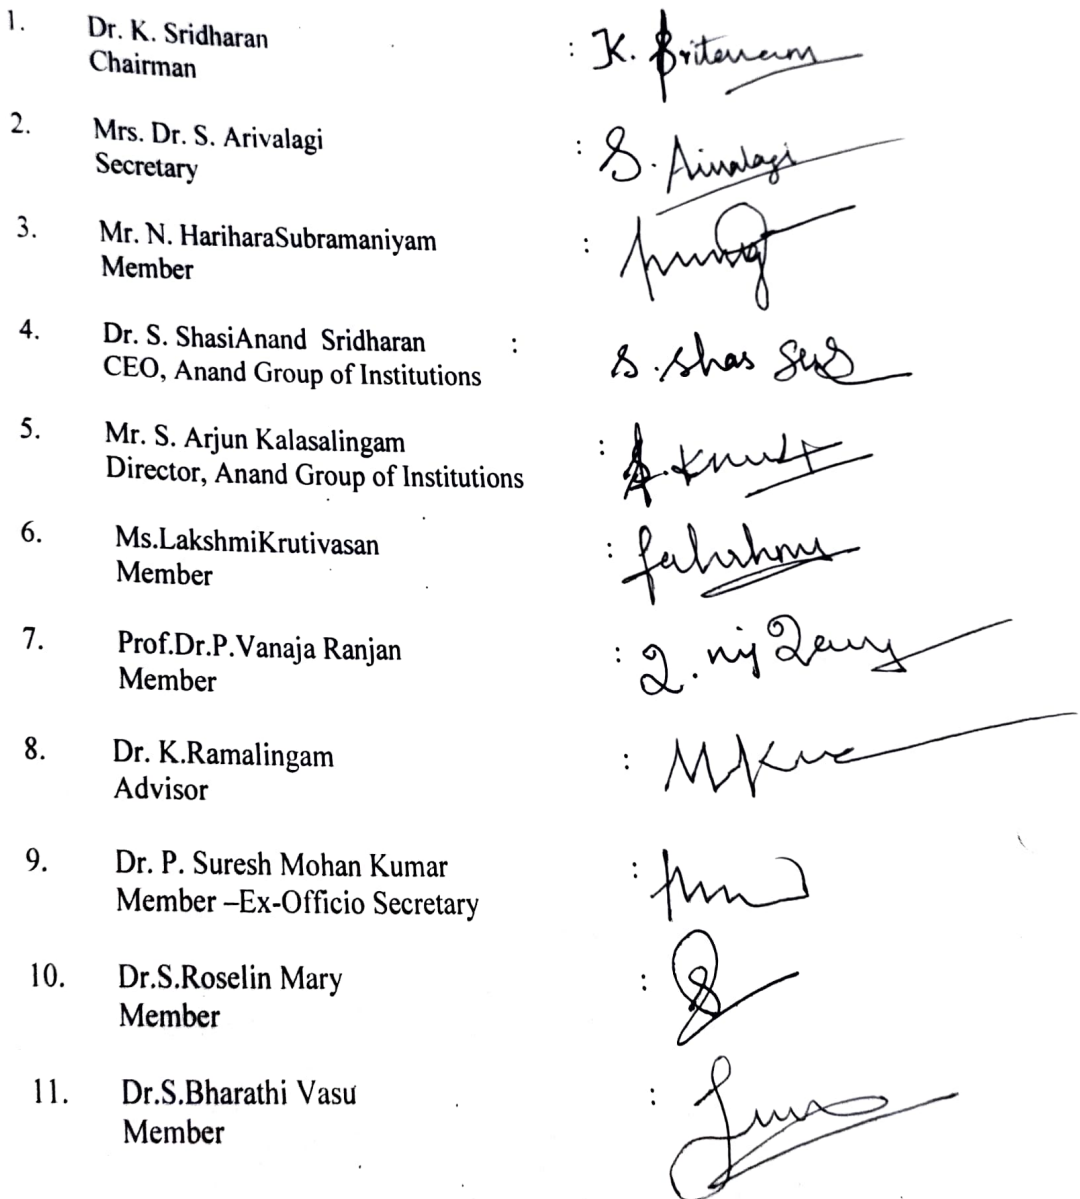 1. Dr. K. Sridharan : K.
Chairman
2. Mrs. Dr. S. Arivalagi : S. Arivalagi
Secretary
3. Mr. N. HariharaSubramaniyam :
Member
4. Dr. S. ShasiAnand Sridharan : S. Shas
CEO, Anand Group of Institutions
5. Mr. S. Arjun Kalasalingam :
Director, Anand Group of Institutions
6. Ms.LakshmiKrutivasan :
Member
7. Prof.Dr.P.Vanaja Ranjan :
Member
8. Dr. K.Ramalingam :
Advisor
9. Dr. P. Suresh Mohan Kumar :
Member –Ex-Officio Secretary
10. Dr.S.Roselin Mary :
Member
11. Dr.S.Bharathi Vasu :
Member